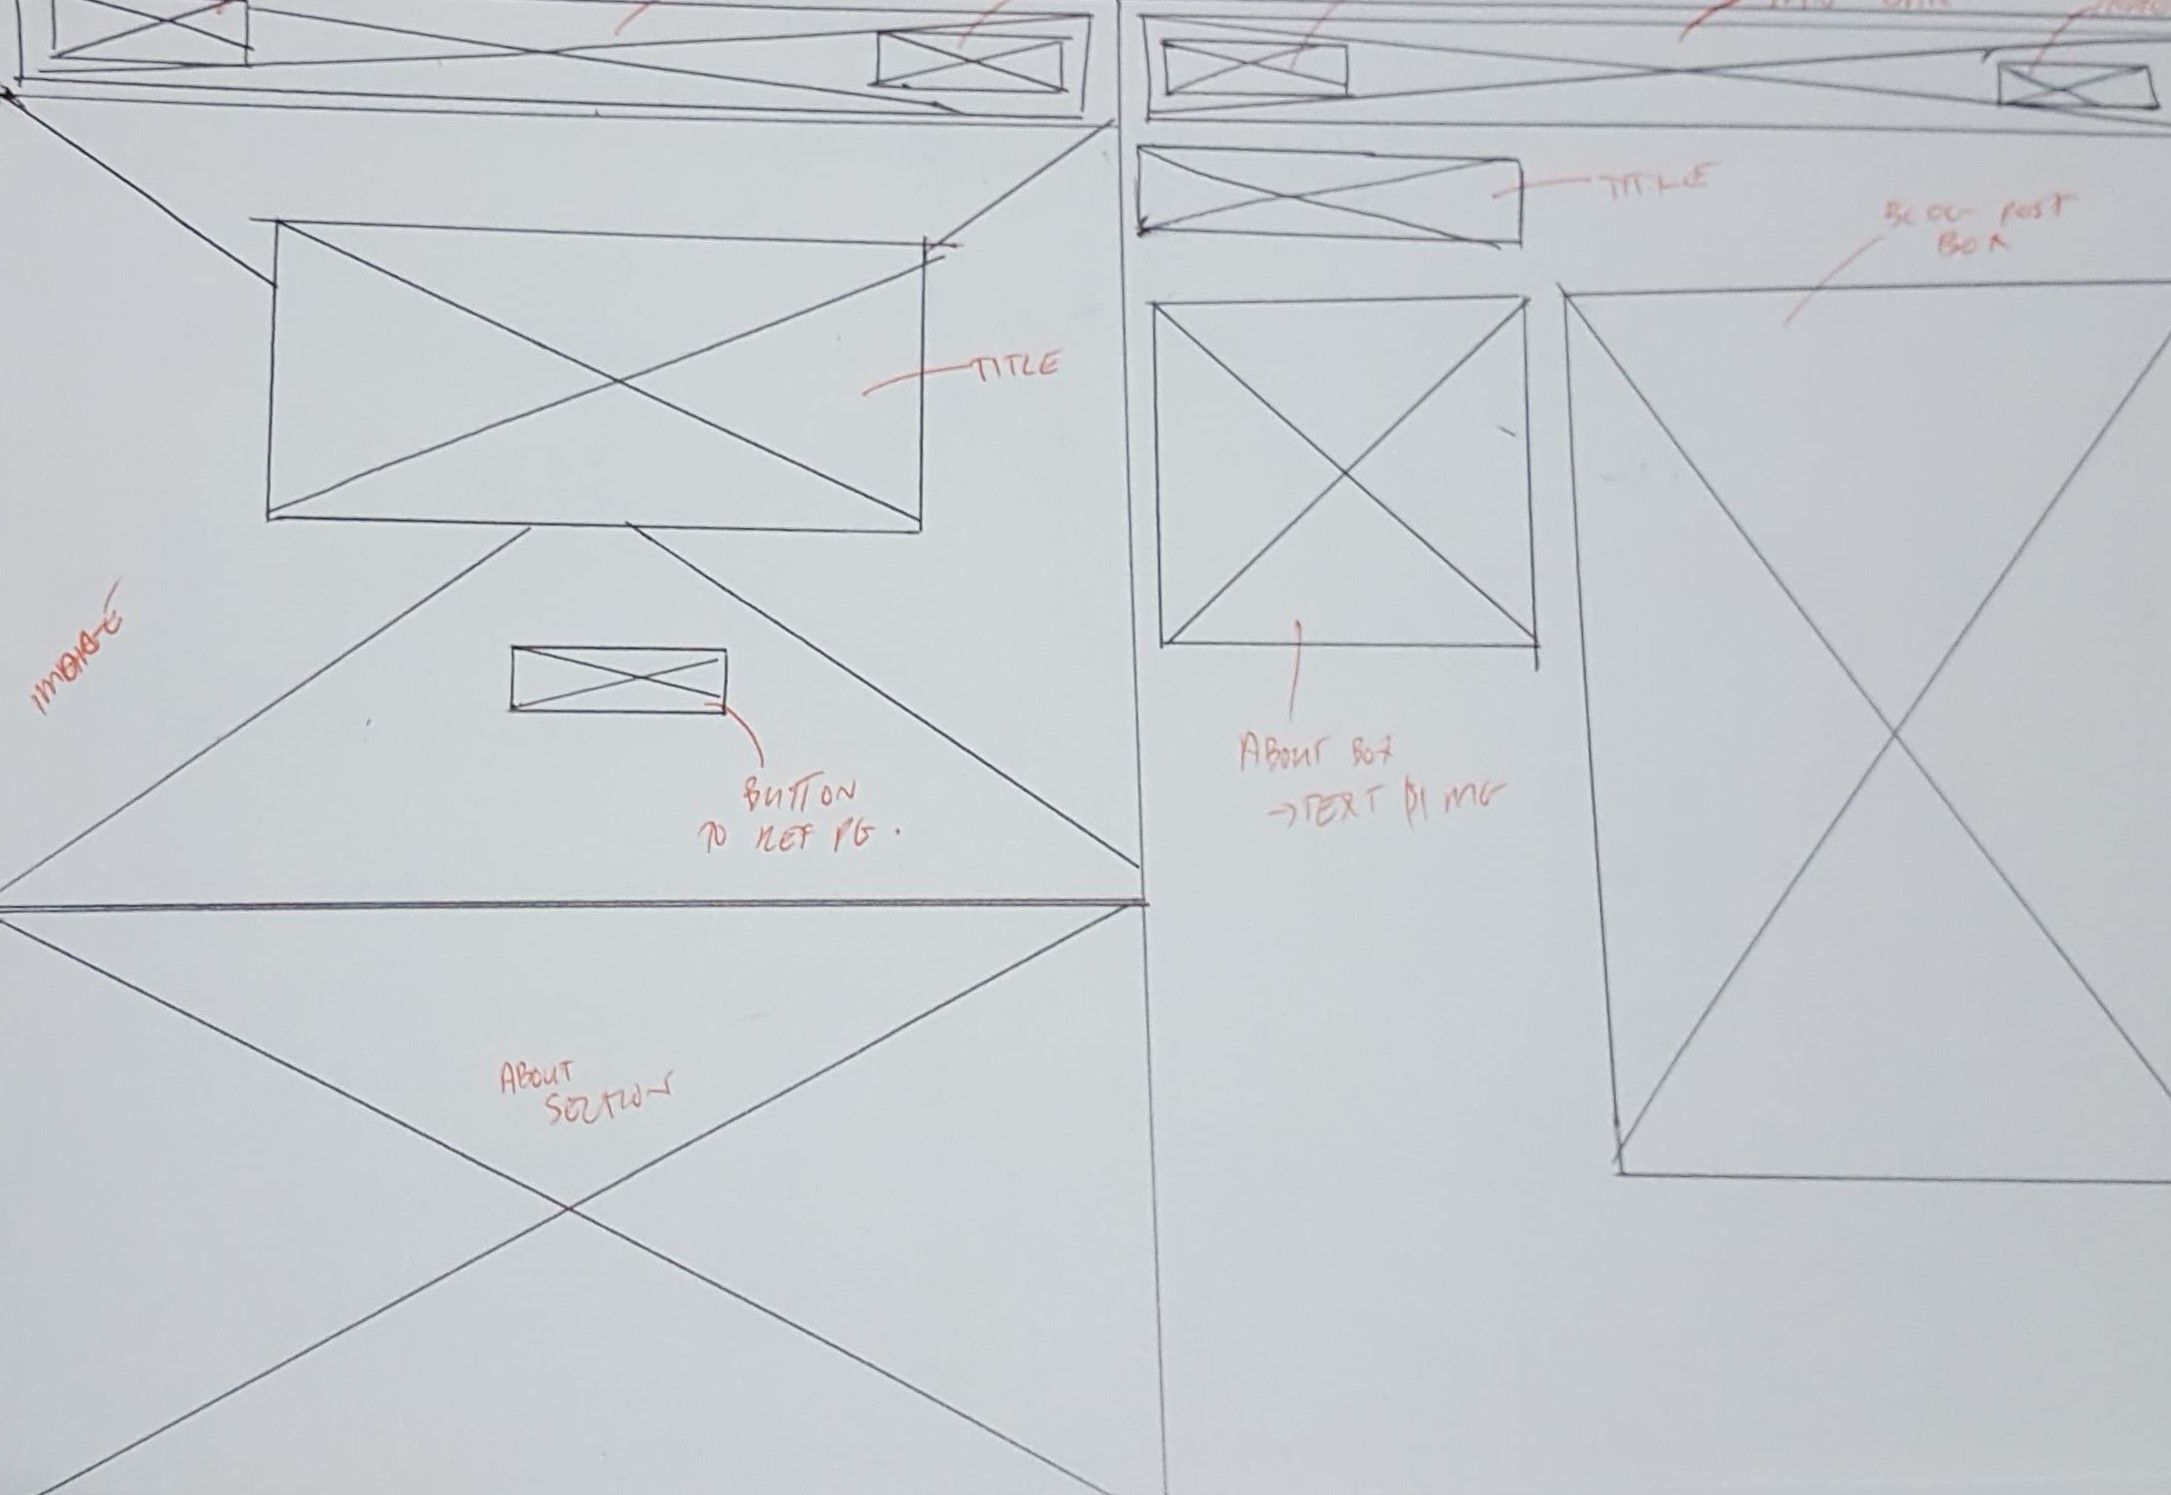 TITLE
IMAGE
BUTTON
TO REF PG.
ABOUT
SECTION
TITLE
BLOG POST
BOX
ABOUT BOX
→TEXT